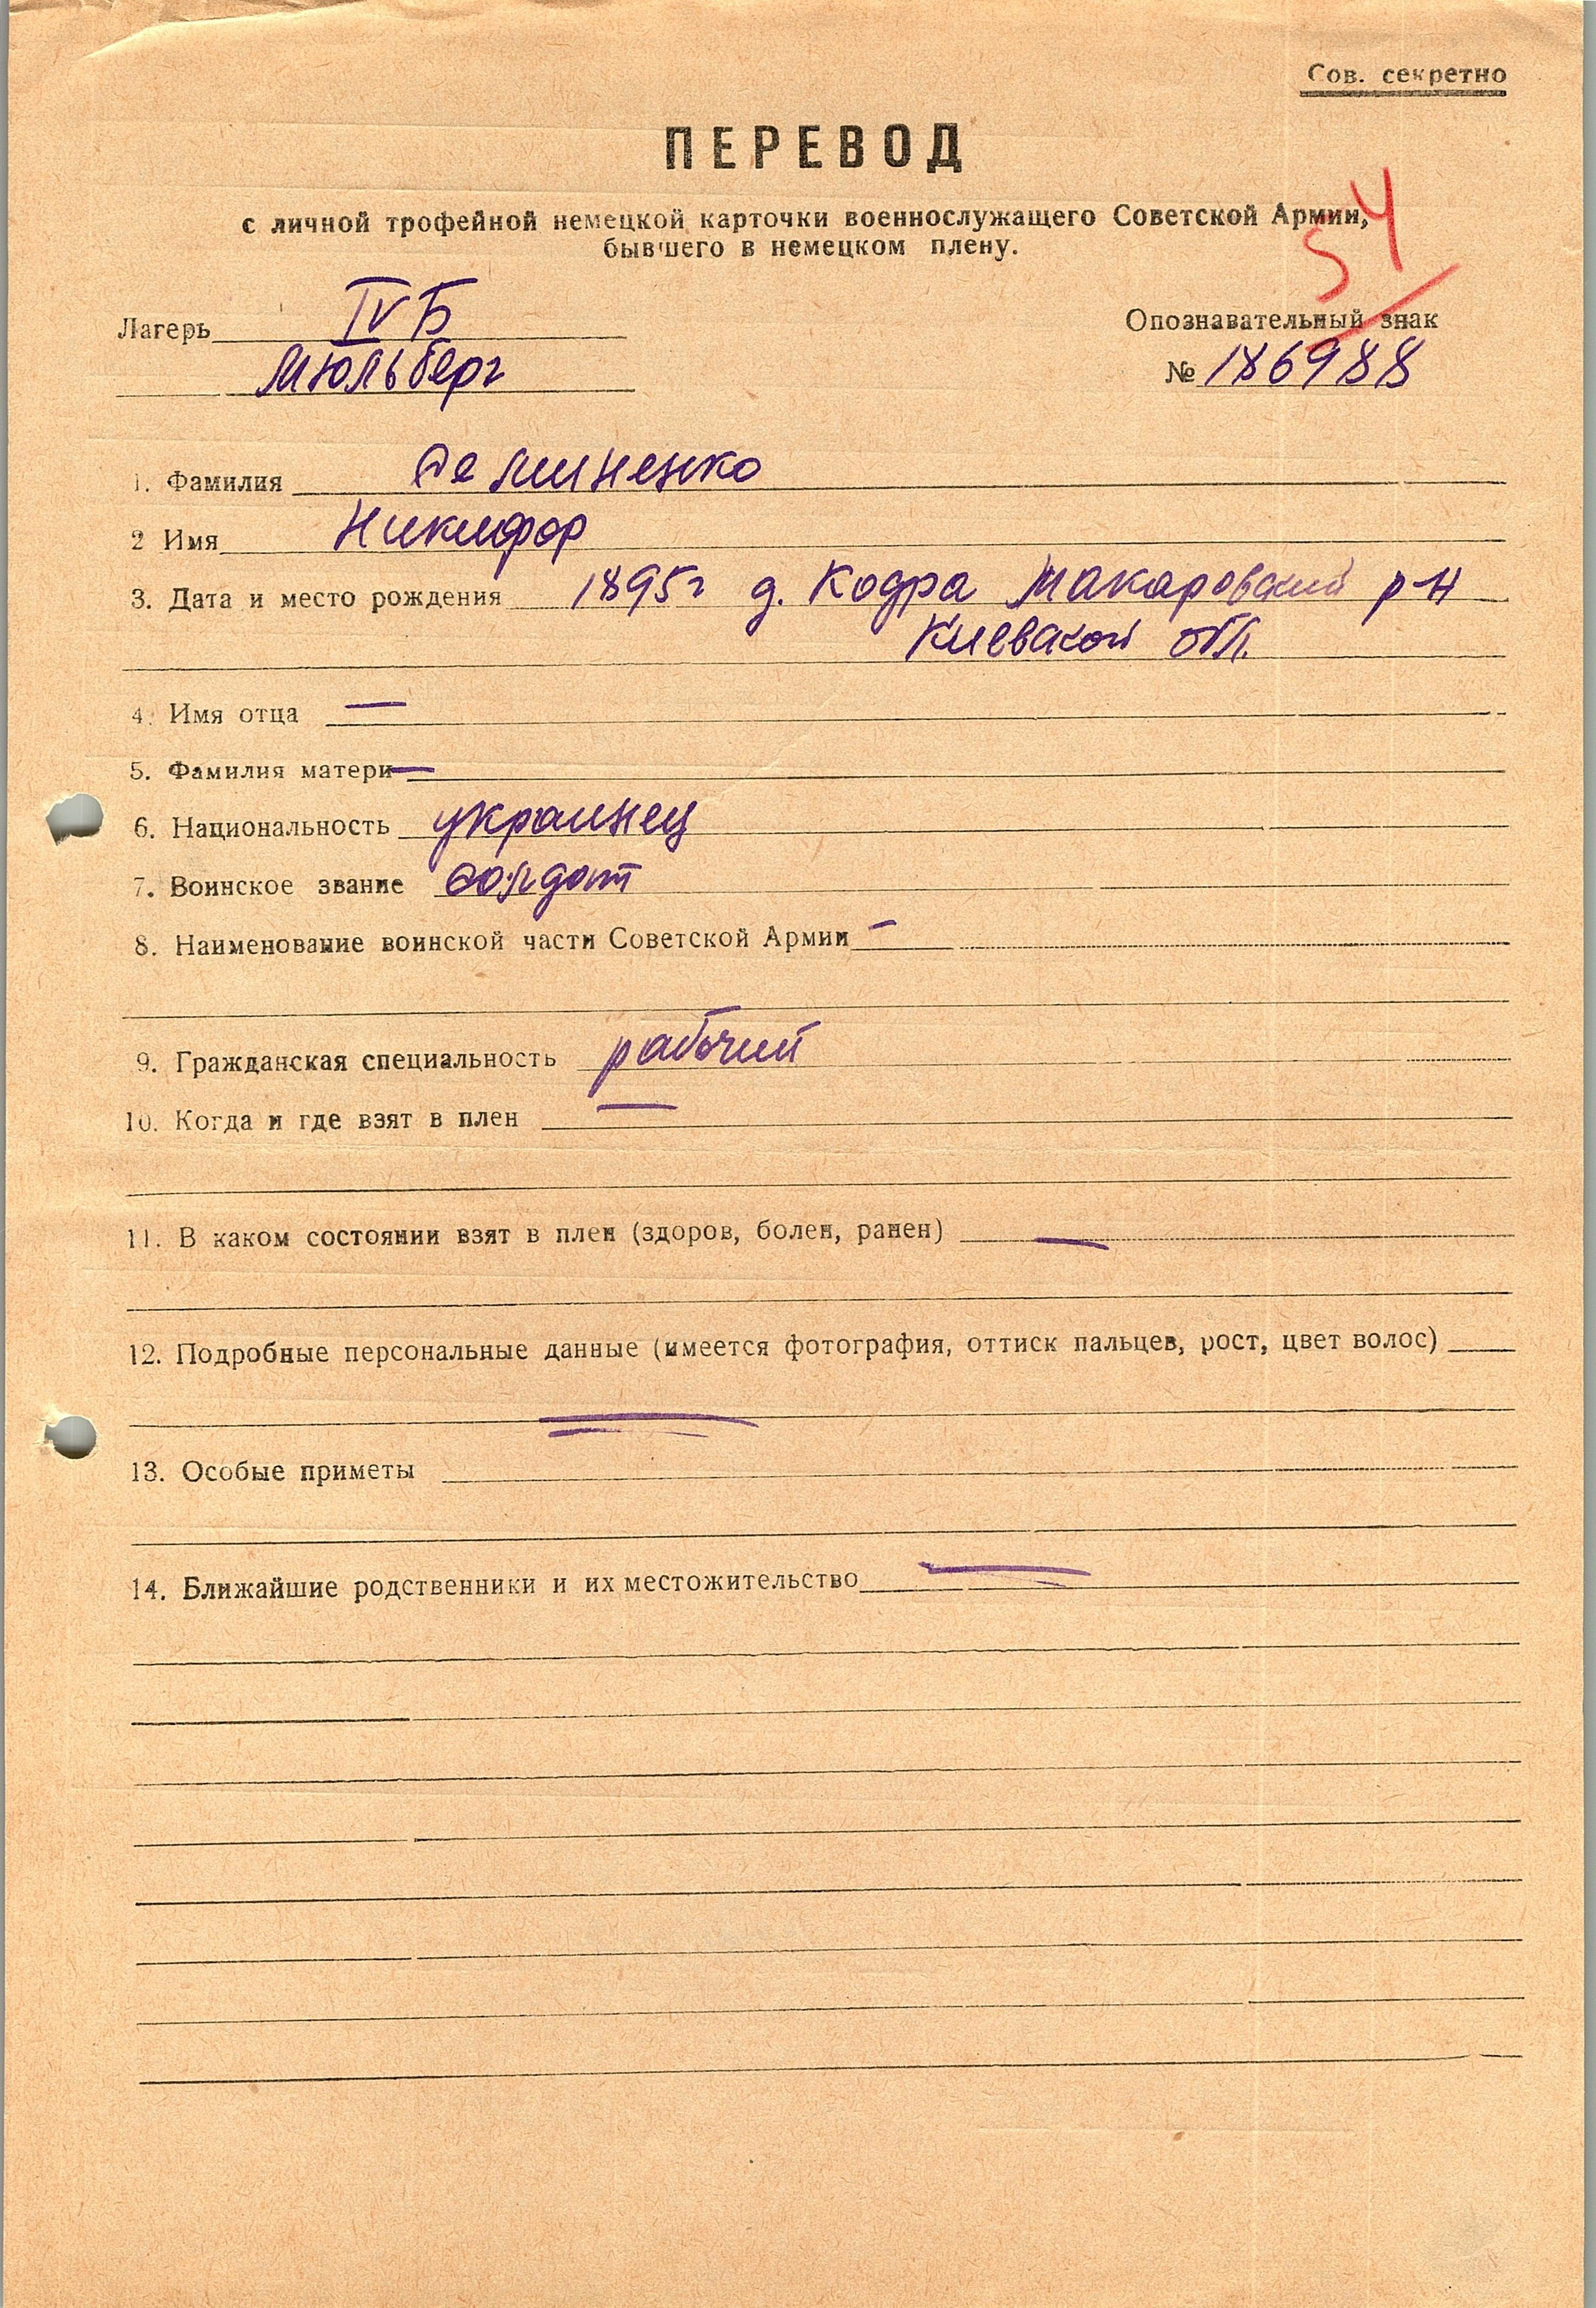 Сов. секретно
ПЕРЕВОД
с личной трофейной немецкой карточки военнослужащего Советской Армии,
бывшего в немецком плену.
54
Лагерь IV Б
Мюльберг
Опознавательный знак
№ 186988
1. Фамилия Деминенко
2 Имя Никифор
3. Дата и место рождения 1895г д. Кодра Макаровский р-н
Киевской обл.
4. Имя отца —
5. Фамилия матери —
6. Национальность украинец
7. Воинское звание солдат
8. Наименование воинской части Советской Армии —
9. Гражданская специальность рабочий
10. Когда и где взят в плен —
11. В каком состоянии взят в плен (здоров, болен, ранен) —
12. Подробные персональные данные (имеется фотография, оттиск пальцев, рост, цвет волос)
—
13. Особые приметы
14. Ближайшие родственники и их местожительство —